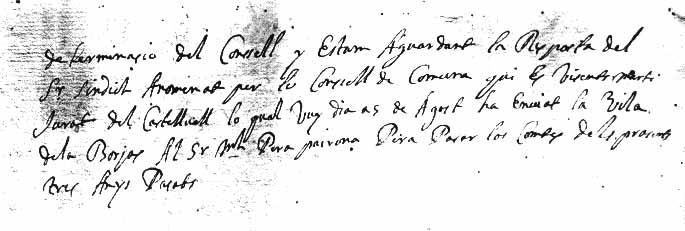 determinasio del Consell y Estam Aguardant la Resposta del
Sr Sindich Anomenat per lo Consell de Comuna qui Es Visent marti
Jurat del Castellvell lo qual Vuy dia 25 de Agost ha Enviat la Vila
dela Borjas Al Sr Mtn Pera pairona Pera Pasar los Comtes dels prosens
tres Anys Pasats